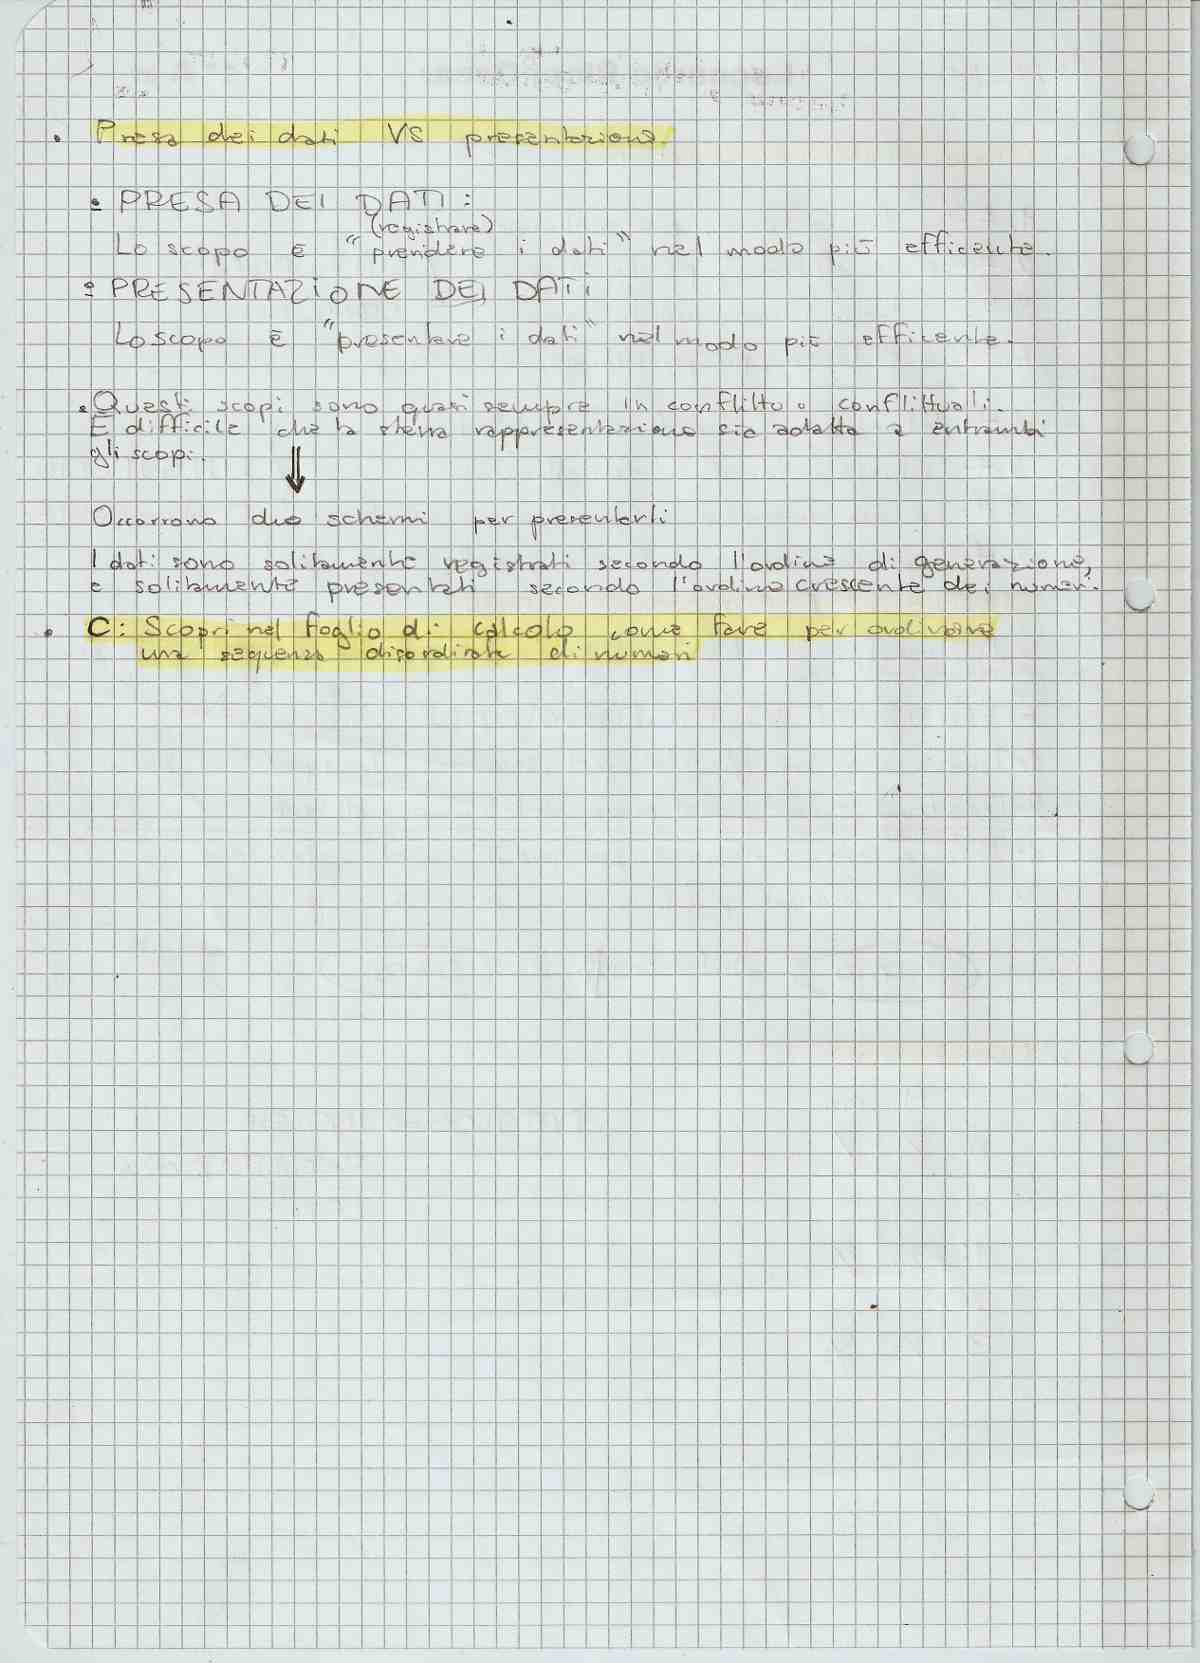 • Presa dei dati VS presentazione.
• PRESA DEI DATI:
(registrare)
Lo scopo è "prendere i dati" nel modo più efficente.
• PRESENTAZIONE DEI DATI
Lo scopo è "presentare i dati" nel modo più efficente.
• Questi scopi sono quasi sempre in conflitto o conflittuali.
È difficile che la stessa rappresentazione sia adatta a entrambi
gli scopi.
Occorrono due schemi per presentarli
I dati sono solitamente registrati secondo l'ordine di generazione,
e solitamente presentati secondo l'ordine crescente dei numeri.
• C: Scopri nel foglio di calcolo come fare per ordinare
una sequenza disordinata di numeri